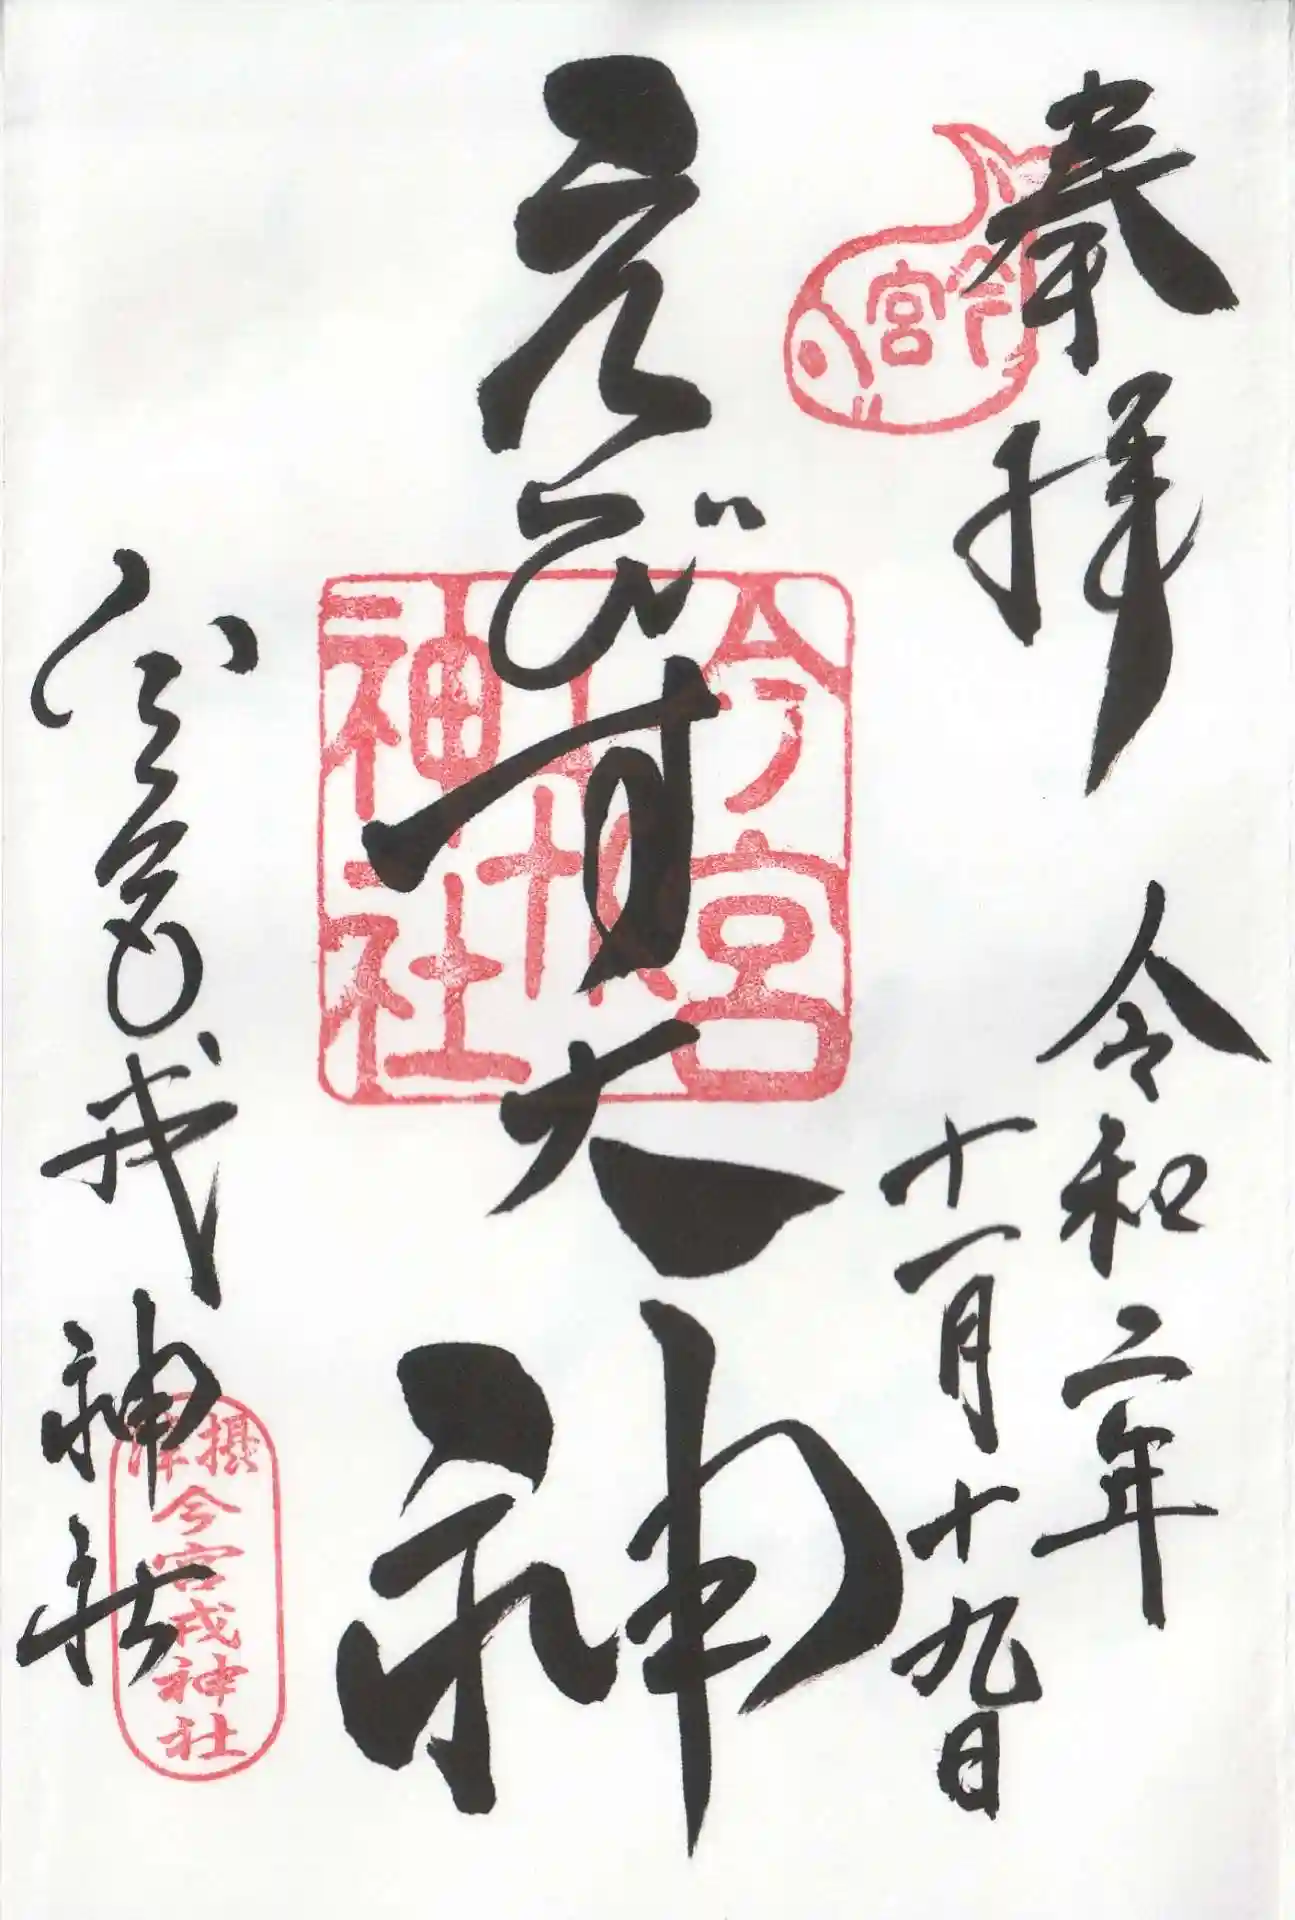 奉拝
今宮
令和二年
十一月十九日
えびす大神
今宮
戎
神社
今宮戎神社
摂津
今宮戎神社